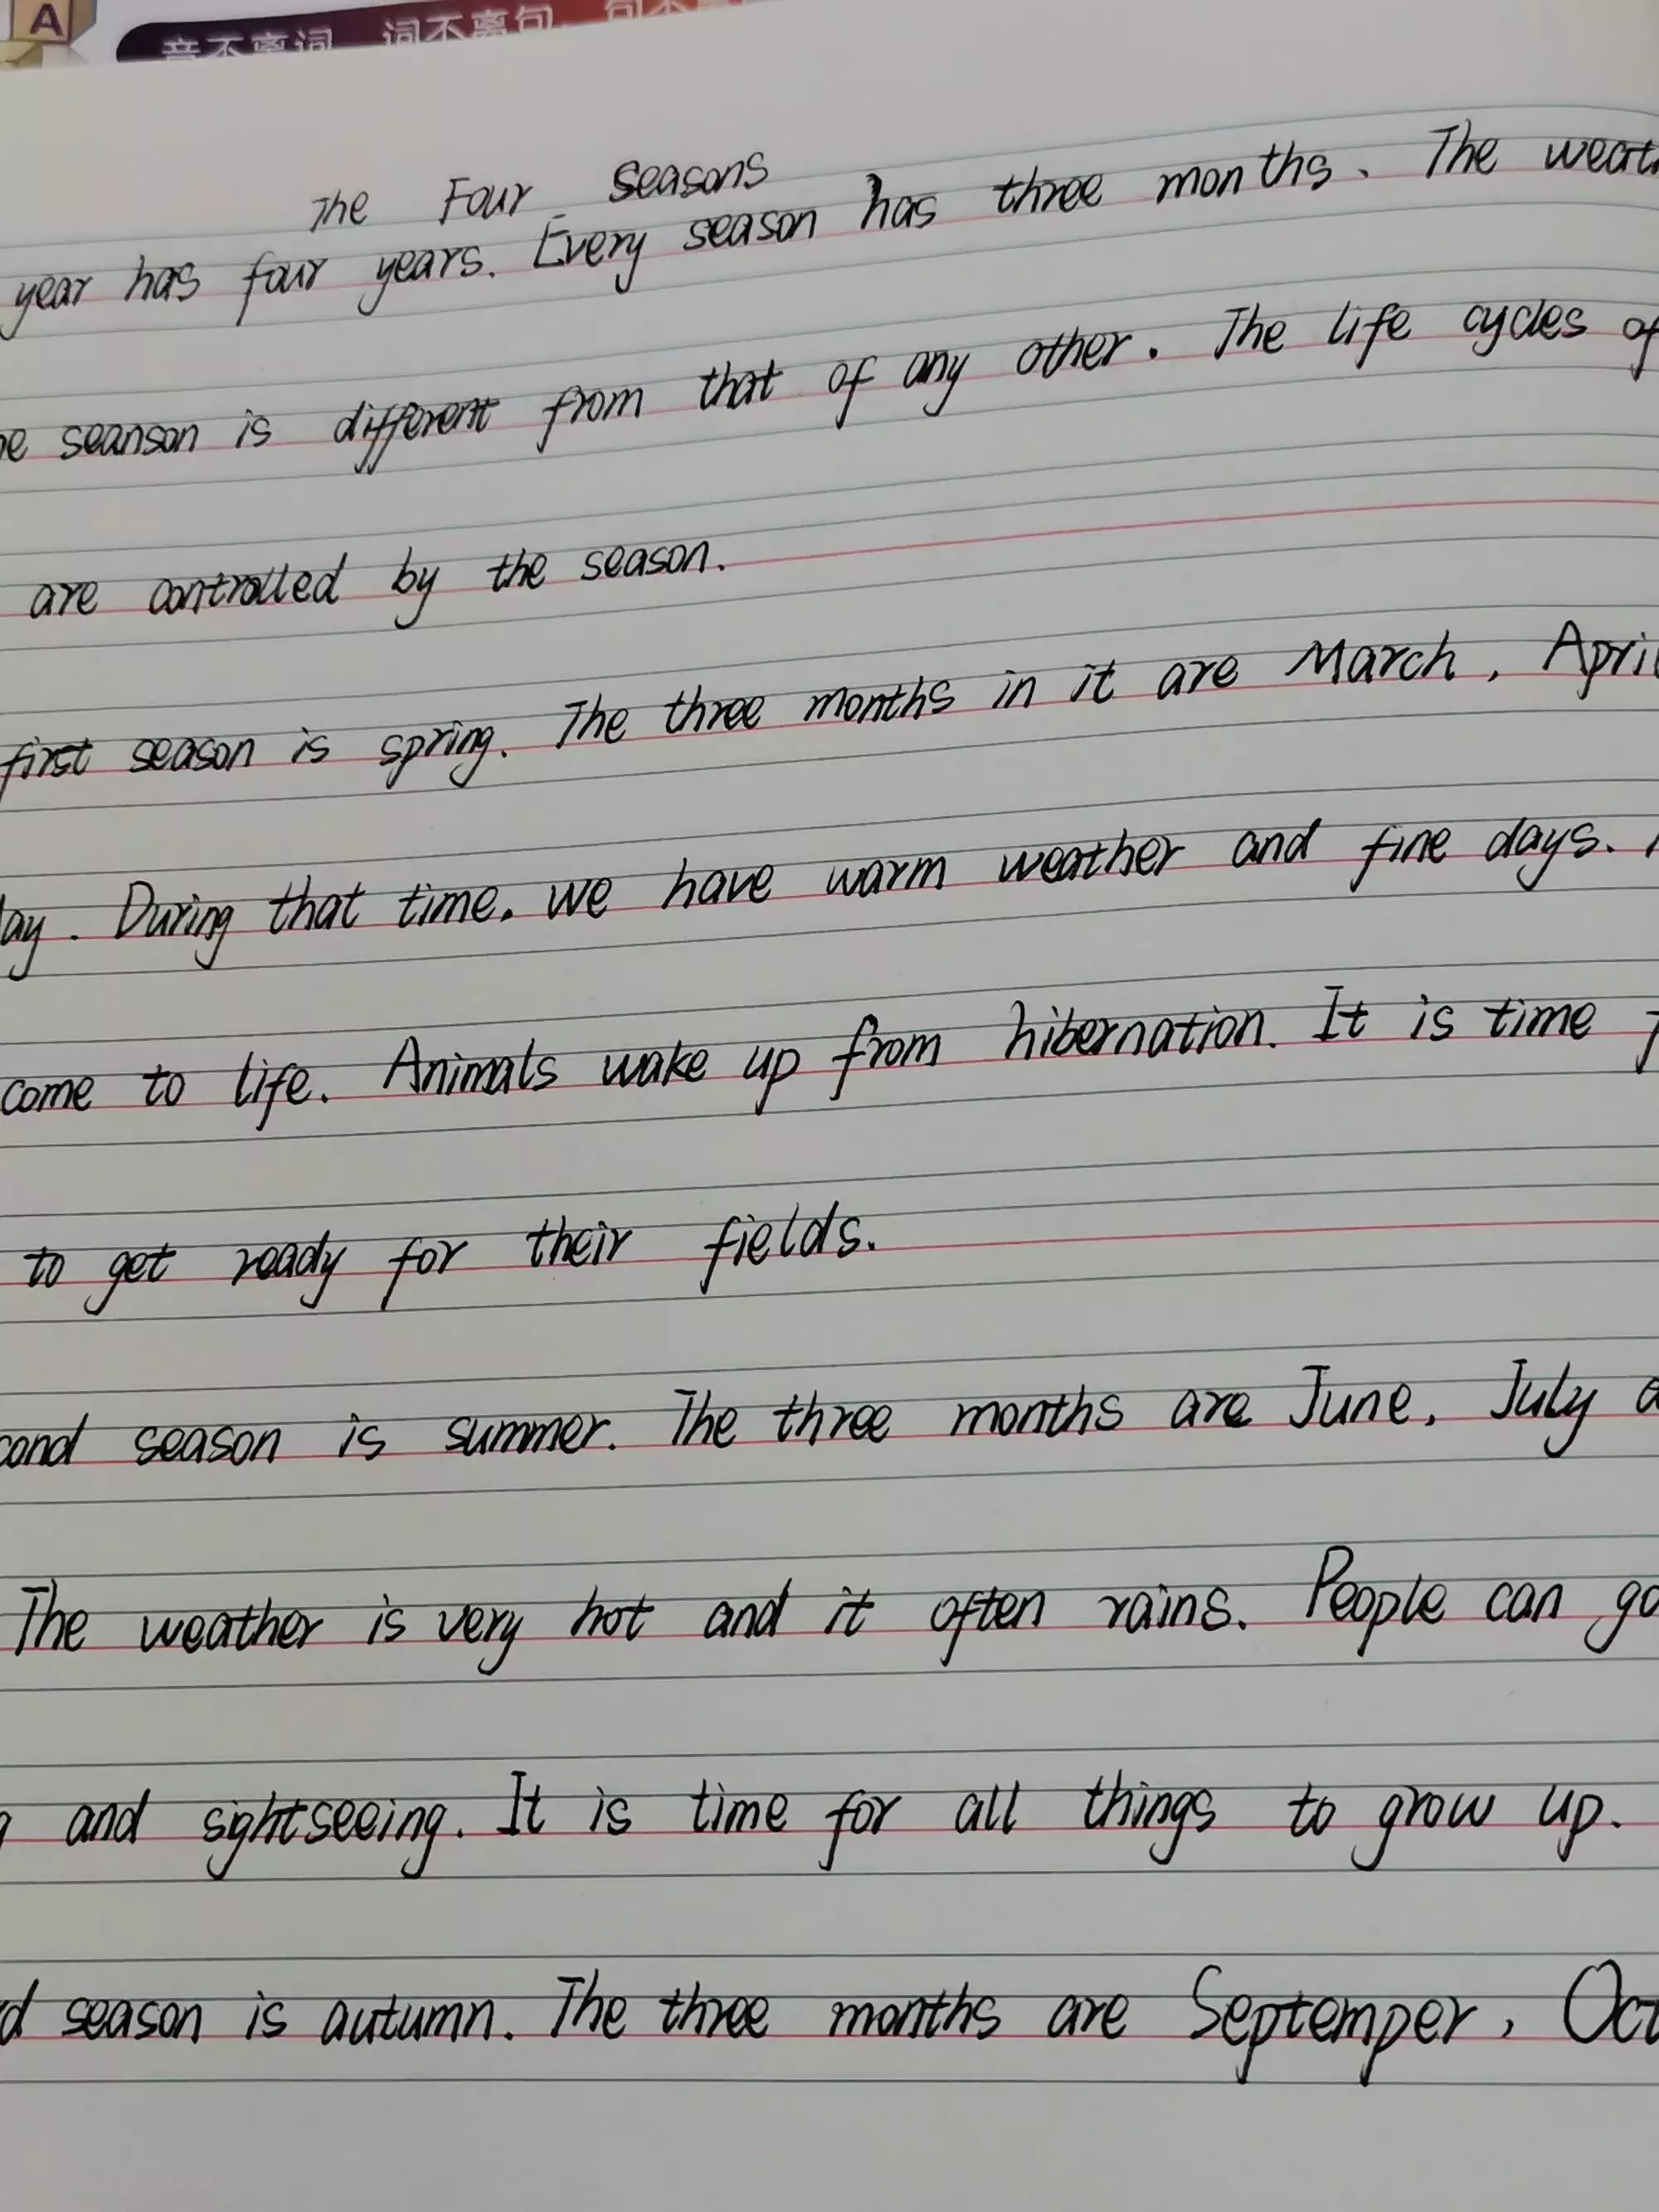 A
音不离词 词不离句
The Four Seasons
year has four years. Every season has three months. The
seanson is different from that of any other. The life cycles of
are controlled by the season.
first season is spring. The three months in it are March, April
During that time. we have warm weather and fine days.
come to life. Animals wake up from hibernation. It is time
to get ready for their fields.
season is summer. The three months are June, July
The weather is very hot and it often rains. People can go
and sightseeing. It is time for all things to grow up.
season is autumn. The three months are Septemper, Oct